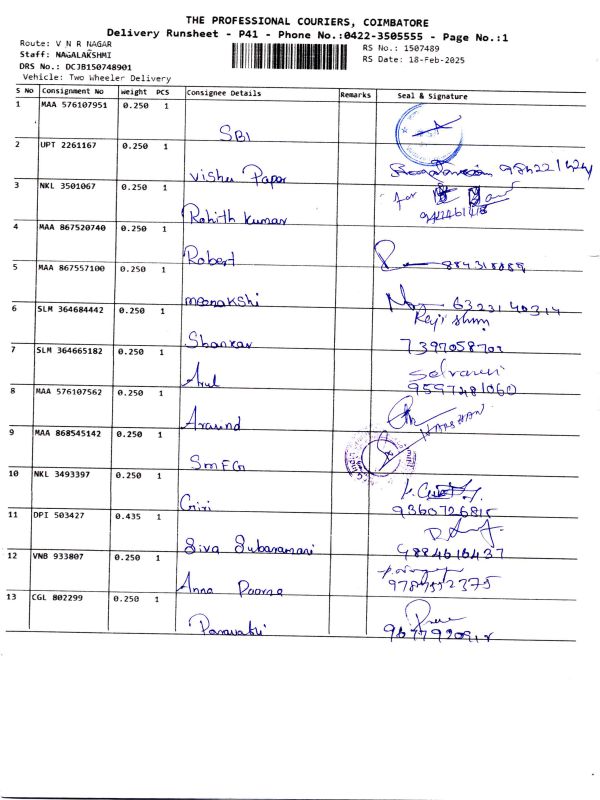 THE PROFESSIONAL COURIERS, COIMBATORE
Delivery Runsheet - P41 - Phone No.:0422-3505555 - Page No.:1
Route: V N R NAGAR
Staff: NAGALAKSHMI
DRS No.: DCJB150748901
Vehicle: Two Wheeler Delivery
RS No.: 1507489
RS Date: 18-Feb-2025
S No Consignment No Weight PCS Consignee Details Remarks Seal & Signature
1 MAA 576107951 0.250 1
SBI
2 UPT 2261167 0.250 1
Vishu Papar
3 NKL 3501067 0.250 1
for
Rohith kumar
4 MAA 867520740 0.250 1
Robert
5 MAA 867557100 0.250 1
meenakshi
6 SLM 364684442 0.250 1
Shankar
7 SLM 364665182 0.250 1
Arul 9597481060
8 MAA 576107562 0.250 1
Aravind
HARSHAN
9 MAA 868545142 0.250 1
SMFG
10 NKL 3493397 0.250 1
Giri 9360726815
11 DPI 503427 0.435 1
Siva Subaramani 9884616437
12 VNB 933807 0.250 1
Anna Poorna
13 CGL 802299 0.250 1
Paravathi